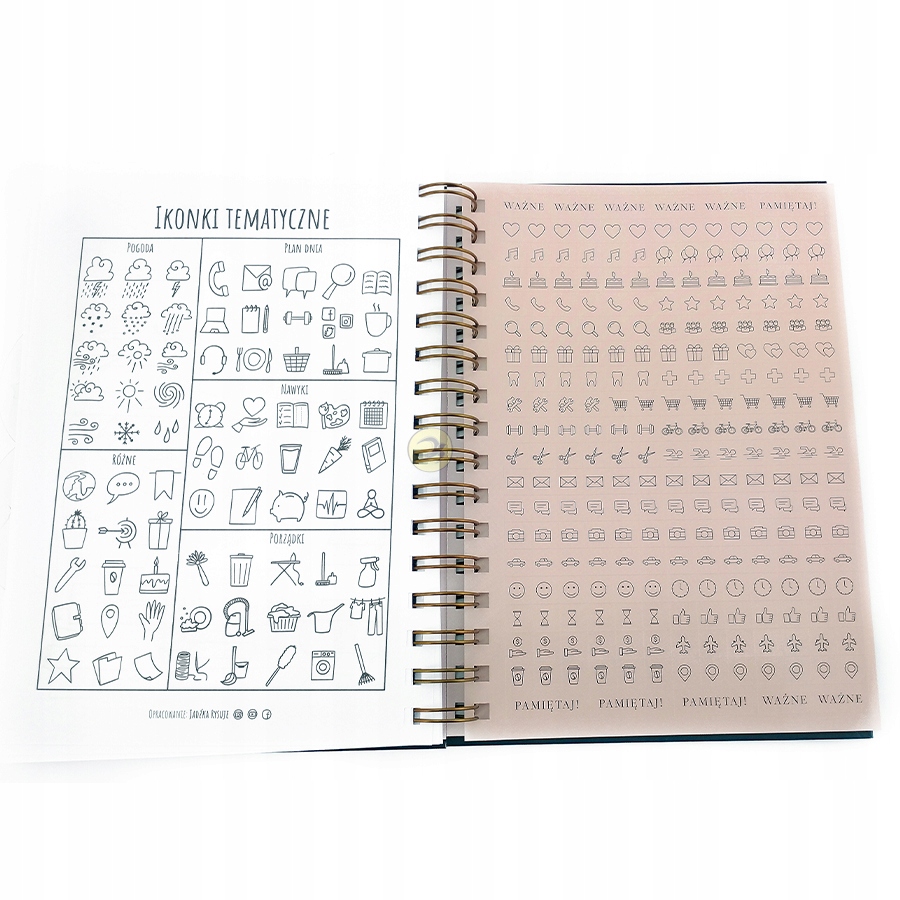 IKONKI TEMATYCZNE
POGODA
PLAN DNIA
NAWYKI
RÓŻNE
PORZĄDKI
OPRACOWANIE: JADŹKA RYSUJE
WAŻNE WAŻNE WAŻNE WAŻNE WAŻNE PAMIĘTAJ!
PAMIĘTAJ! PAMIĘTAJ! PAMIĘTAJ! WAŻNE WAŻNE